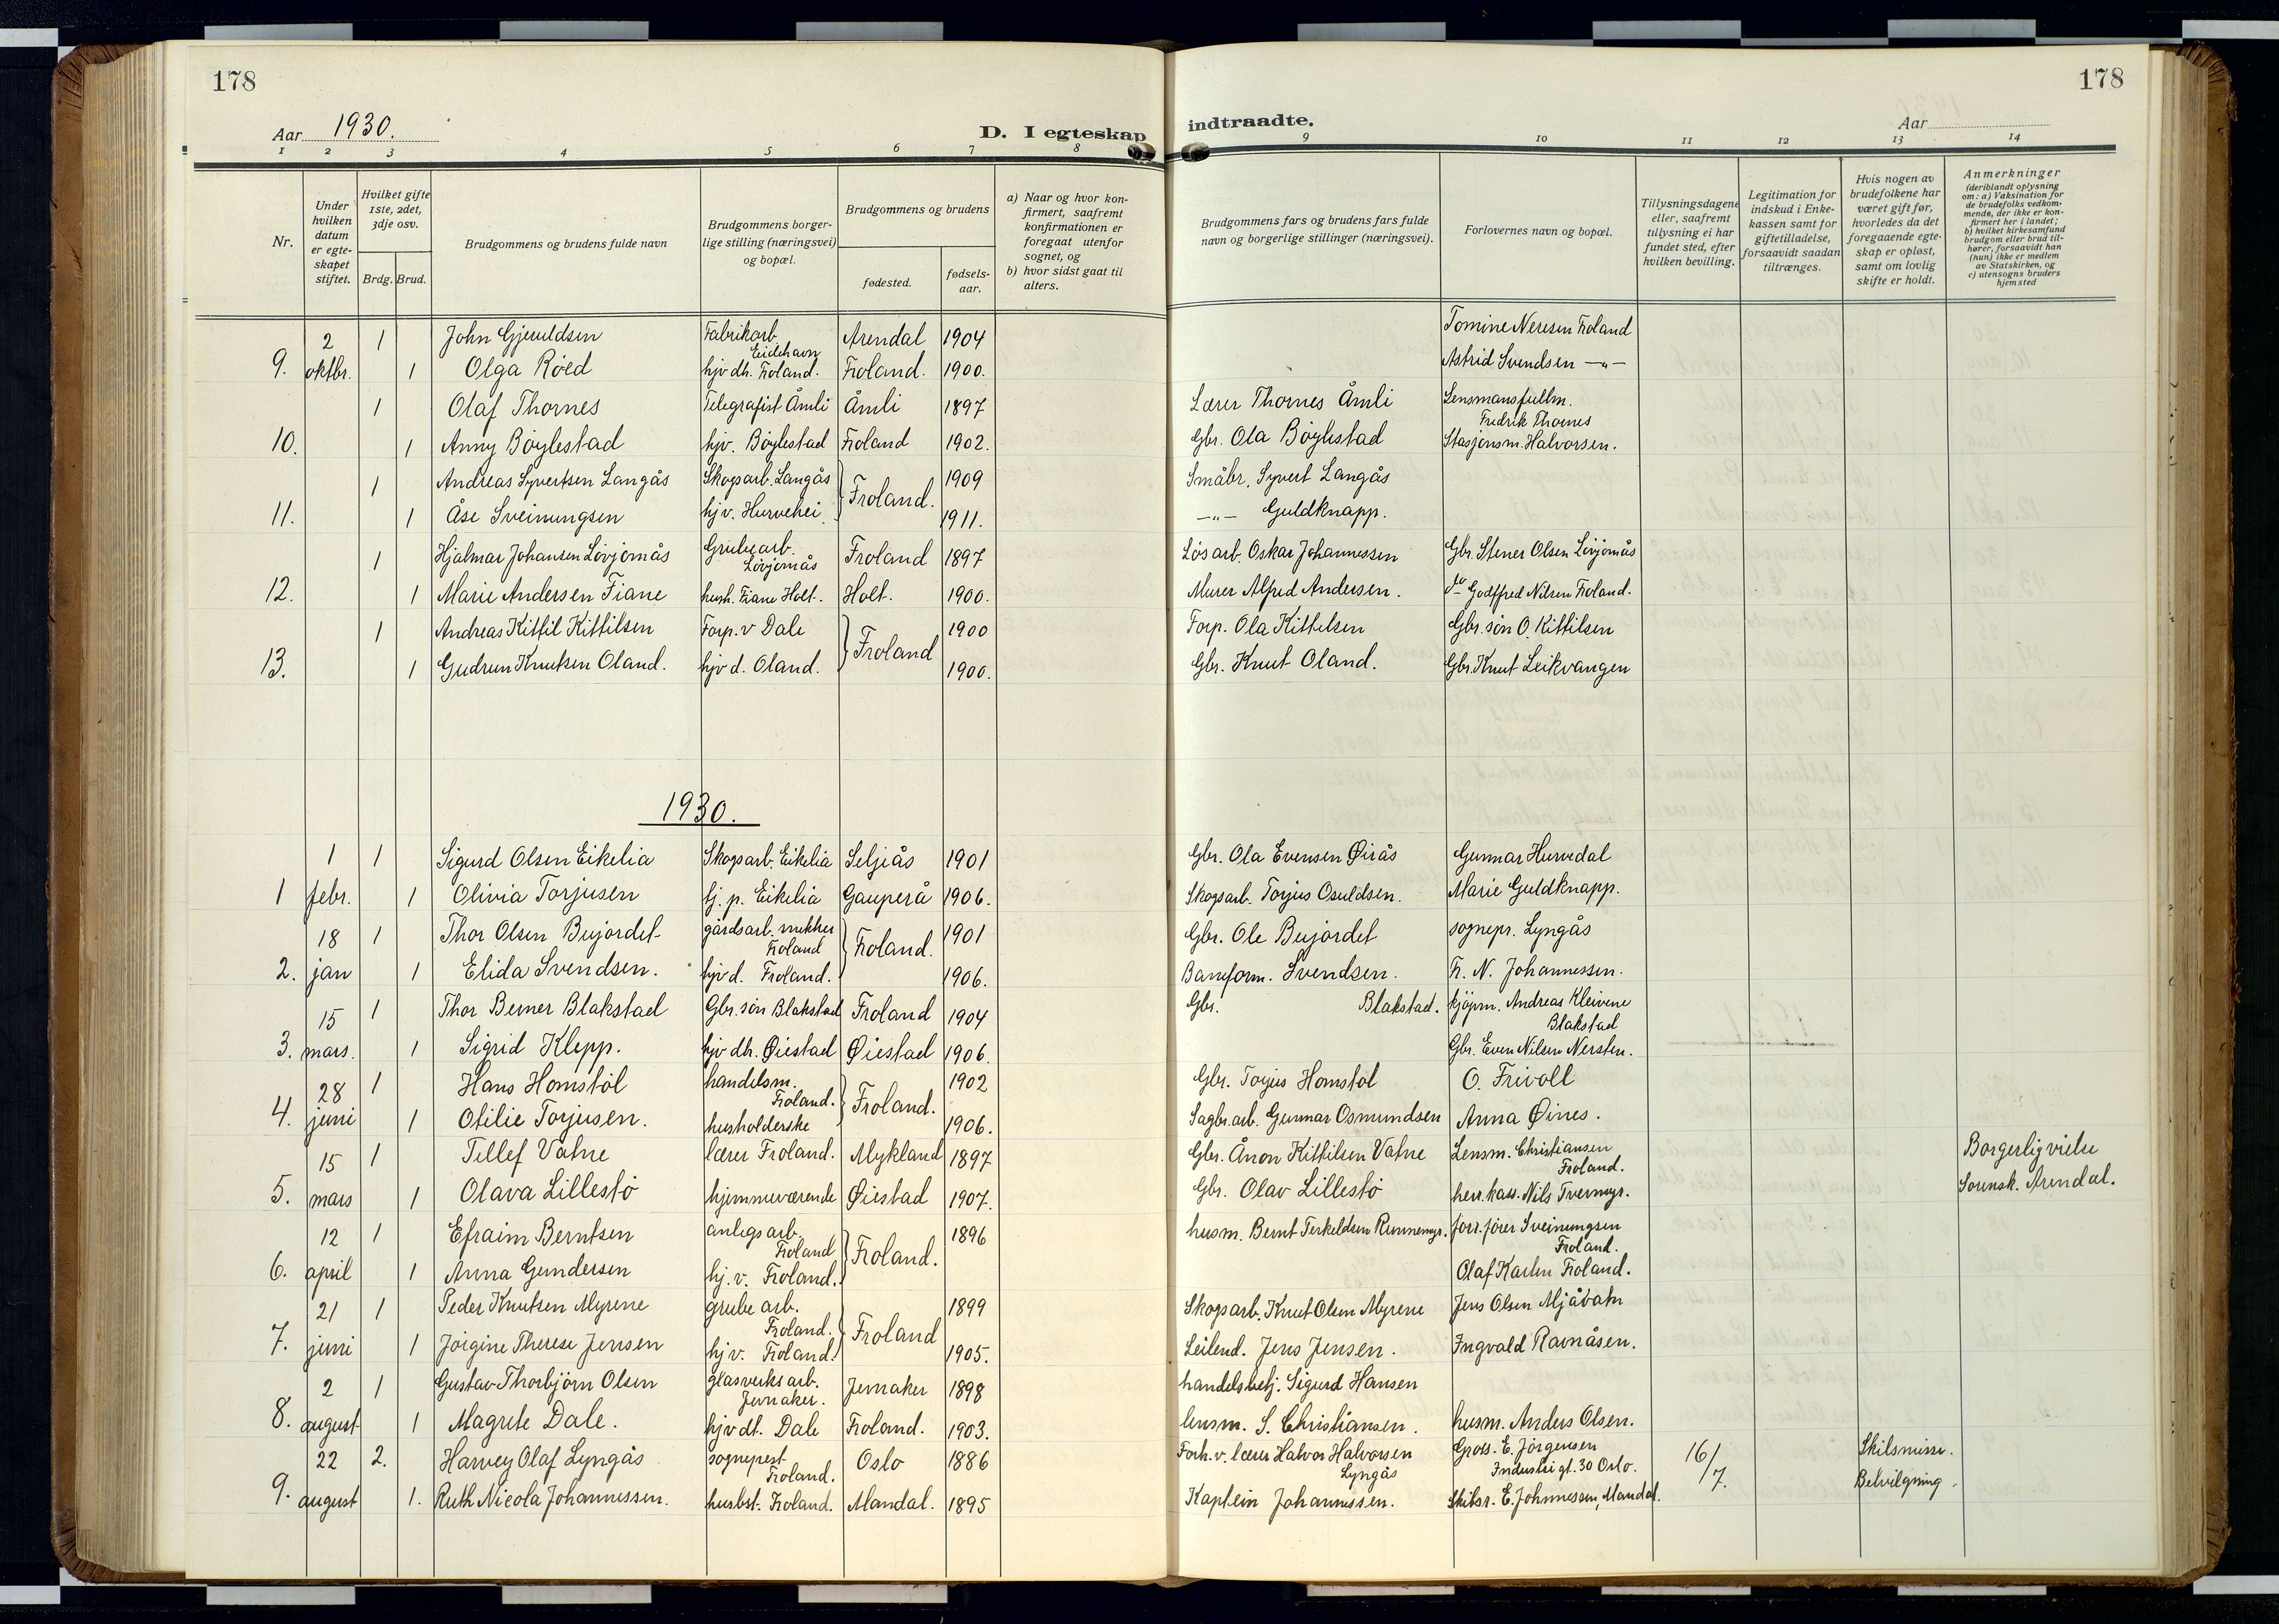 178
178
Aar 1930.
D. I egteskap
indtraadte.
Aar
1 2 3 4 5 6 7 8
9 10 11 12 13 14
Nr.
Under hvilken datum er egte-skapet stiftet.
Hvilket gifte 1ste, 2det, 3dje osv.
Brdg. Brud.
Brudgommens og brudens fulde navn
Brudgommens borger-lige stilling (næringsvei) og bopæl.
Brudgommens og brudens
fødested.
fødsels-aar.
a) Naar og hvor kon-firmert, saafremt konfirmationen er foregaat utenfor sognet, og
b) hvor sidst gaat til alters.
Brudgommens fars og brudens fars fulde navn og borgerlige stillinger (næringsvei).
Forlovernes navn og bopæl.
Tillysningsdagene eller, saafremt tillysning ei har fundet sted, efter hvilken bevilling.
Legitimation for indskud i Enke-kassen samt for giftetilladelse, forsaavidt saadan tiltrænges.
Hvis nogen av brudefolkene har været gift før, hvorledes da det foregaaende egte-skap er opløst, samt om lovlig skifte er holdt.
Anmerkninger (deriblandt oplysning om: a) Vaksination for de brudefolks vedkom-mende, der ikke er kon-firmert her i landet; b) hvilket kirkesamfund brudgom eller brud til-hører, forsaavidt han (hun) ikke er medlem av Statskirken, og c) utensogns bruders hjemsted
2 1 John Gjeruldsen Fabrikarb. Eidehavn Arendal 1904 Tomine Neresen Froland
9. oktbr. 1 Olga Röed hjv dh. Froland. Froland. 1900. Astrid Svendsen —„—
1 Olaf Thornes Telegrafist Åmli Åmli 1897 Lærer Thornes Åmli Lensmansfullm. Fredrik Thornes
10. 1 Anny Böylestad hjv. Böylestad Froland 1902. Gbr. Ola Böylestad Stasjonsm. Halvorsen.
1 Andreas Syvertsen Langås Skogsarb. Langås Froland. 1909 Småbr. Syvert Langås
11. 1 Åse Sveinungsen hjv. Hurvehei 1911. —„— Guldknapp.
1 Hjalmar Johansen Lövjomås Grubearb. Lövjomås Froland 1897 Lösarb. Oskar Johannessen Gbr. Stener Olsen Lövjomås
12. 1 Marie Andersen Fiane hush. Fiane Holt. Holt. 1900. Murer Alfred Andersen. do Godtfred Nilsen Froland.
1 Andreas Kittil Kittilsen Forp. v Dale Froland 1900 Forp. Ola Kittelsen Gbr. sön O. Kittilsen
13. 1 Gudrun Knutsen Oland. hjv d. Oland. 1900. Gbr. Knut Oland. Gbr. Knut Leikvangen
1930.
1 1 Sigurd Olsen Eikelia Skogsarb. Eikelia Seljeås 1901 Gbr. Ola Evensen Øirås Gunnar Hurvedal
1 febr. 1 Olivia Torjusen hj. p. Eikelia Gauperå 1906. Skogsarb. Torjus Osuldsen. Marie Guldknapp.
18 1 Thor Olsen Bujordet gårdsarb. Froland Froland. 1901 Gbr. Ole Bujordet sognepr. Lyngås
2. jan 1 Elida Svendsen. hjv d. Froland. 1906. Baneform. Svendsen. Fr. N. Johannessen.
15 1 Thor Berner Blakstad Gbr. sön Blakstad Froland 1904 Gbr. Blakstad. kjöpm. Andreas Kleivene Blakstad
3. mars. 1 Sigrid Klepp. hjv dh. Øiestad Øiestad 1906. Gbr. Even Nilsen Nersten.
28 1 Hans Homstöl handelsm. Froland. Froland. 1902 Gbr. Torjus Homstol O. Frivoll
4. juni 1 Otilie Torjusen. husholderske 1906. Sagbr.arb. Gunnar Osmundsen Anna Øines.
15 1 Tellef Vatne lærer Froland. Mykland 1897 Gbr. Ånon Kittilsen Vatne Lensm. Christiansen Froland. Borgerlig vielse
5. mars 1 Olava Lillestö hjemmeværende Øiestad 1907. Gbr. Olav Lillestö herr.kass. Nils Tvermyr. Sorensk. Arendal.
12 1 Efraim Berntsen anlegsarb. Froland Froland. 1896 husm. Bernt Terkeldsen Runnemyr. forr.förer Sveinungsen Froland.
6. april 1 Anna Gundersen hj. v. Froland. Olaf Karlen Froland.
21 1 Peder Knutsen Myrene grubearb. Froland. Froland 1899 Skogsarb. Knut Olsen Myrene Jens Olsen Mjåvatn
7. juni 1 Jörgine Therese Jensen hj v. Froland. 1905. Leilend. Jens Jensen. Ingvald Ravnåsen.
2 1 Gustav Thorbjörn Olsen glasverksarb. Jevnaker. Jevnaker 1898 handelsbetj. Sigurd Hansen
8. august 1 Magrete Dale. hjv dt. Dale Froland. 1903. lensm. S. Christiansen. husm. Anders Olsen.
22 2. Harvey Olaf Lyngås sogneprest Froland. Oslo 1886 Forh. v. lærer Halvor Halvorsen Lyngås Gross. E. Jörgensen Industrigt. 30 Oslo. 16/7. Skilsmisse.
9. august 1. Ruth Nicola Johannessen. husbst. Froland. Mandal. 1895 Kaptein Johannessen. Skibsr. E. Johnnessen, Mandal. Betvilgning.